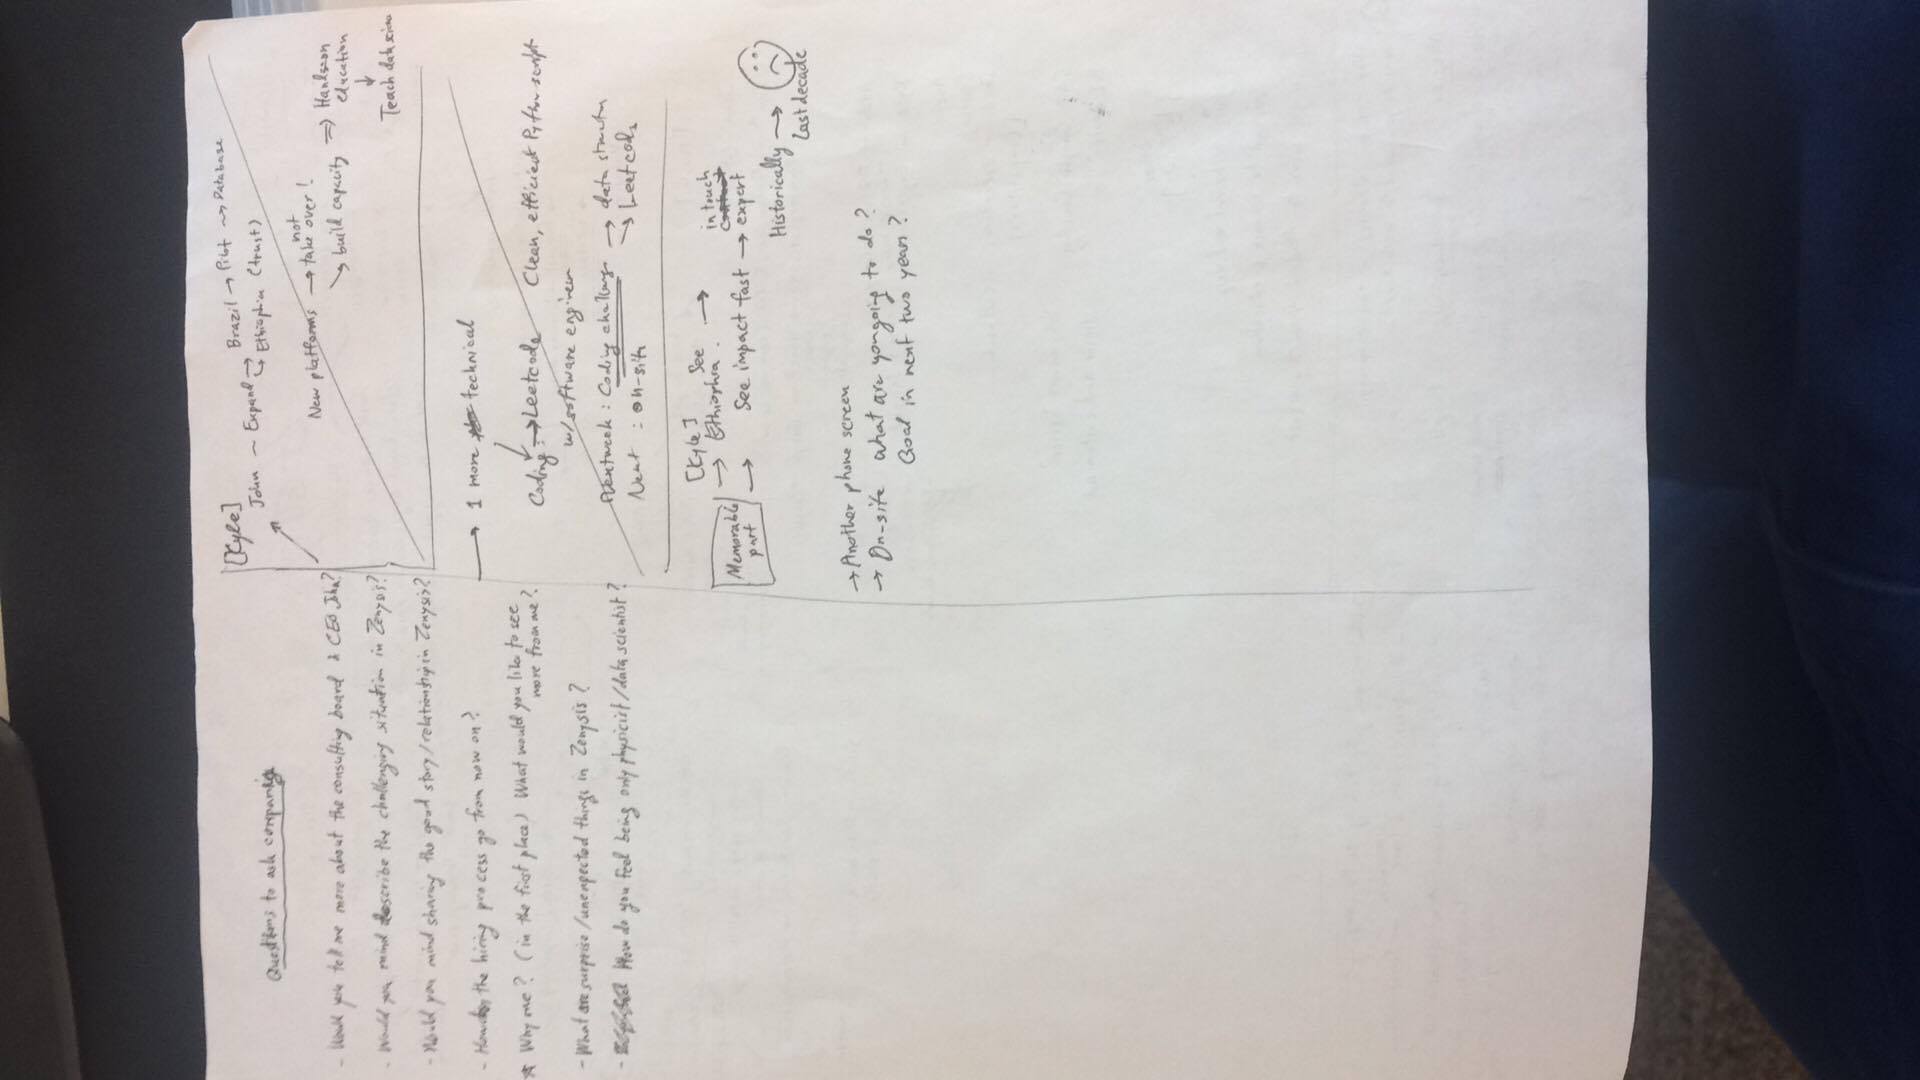 Questions to ask companies
- Would you tell me more about the consulting board & CEO John?
- Would you mind describe the challenging situation in Zenysis?
- Would you mind sharing the good story/relationship in Zenysis?
- How the hiring process go from now on?
☆ Why me? (in the first place) What would you like to see
more from me?
- What are surprise/unexpected things in Zenysis?
- How do you feel being only physicist/data scientist?
[Kyle]
John ~ Expand → Brazil → Pilot → Database
↳ Ethiophia (trust)
New platforms → not take over!
↘ build capacity ⇒ Handson
education
↓
Teach data science
→ 1 more technical
↓
Coding: → Leetcode Clean, efficient Python script
w/software engineer
Nextweek : Coding challenge → data structu
→ Leetcode
Next : on-site
[Kyle]
Memorable
part
→ Ethiophia. See →
→ See impact fast → in touch
expert
Historically → ☹
Last decade
→ Another phone screen
→ On-site what are you going to do?
Goal in next two years?